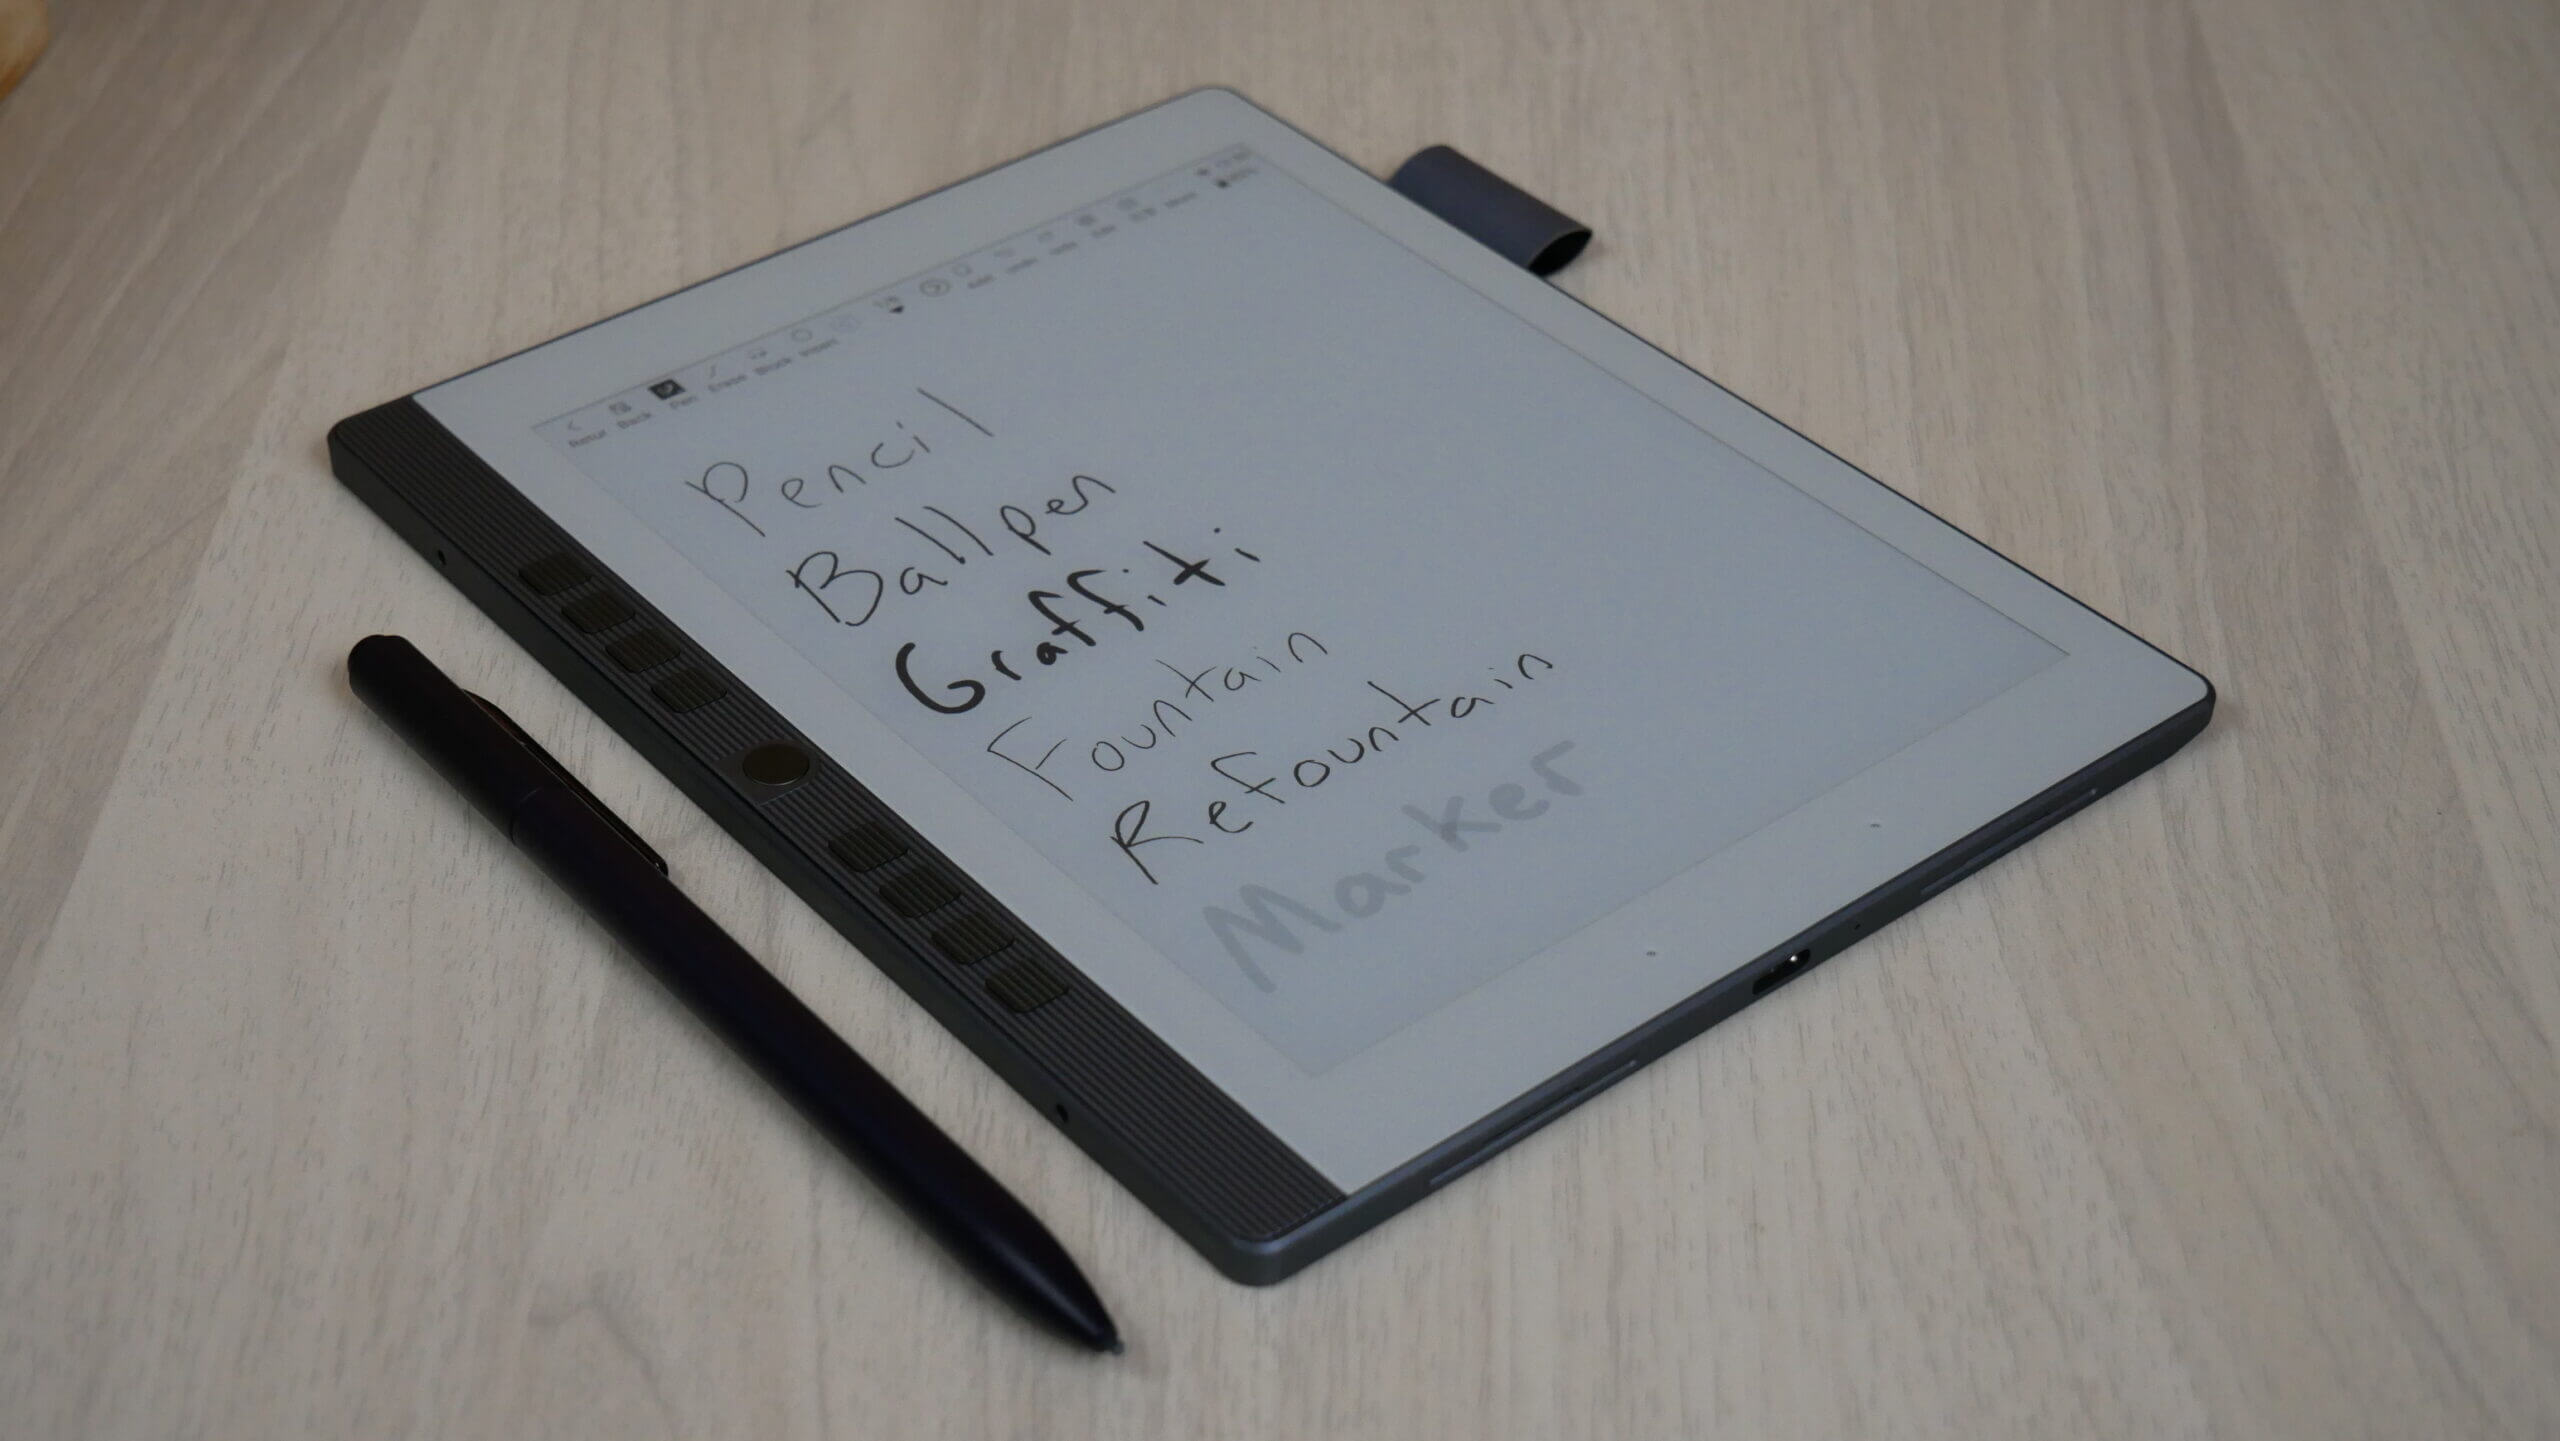 Retur Back Pen Erase Block Insert Add undo redo
Pencil
Ballpen
Graffiti
Fountain
Refountain
Marker